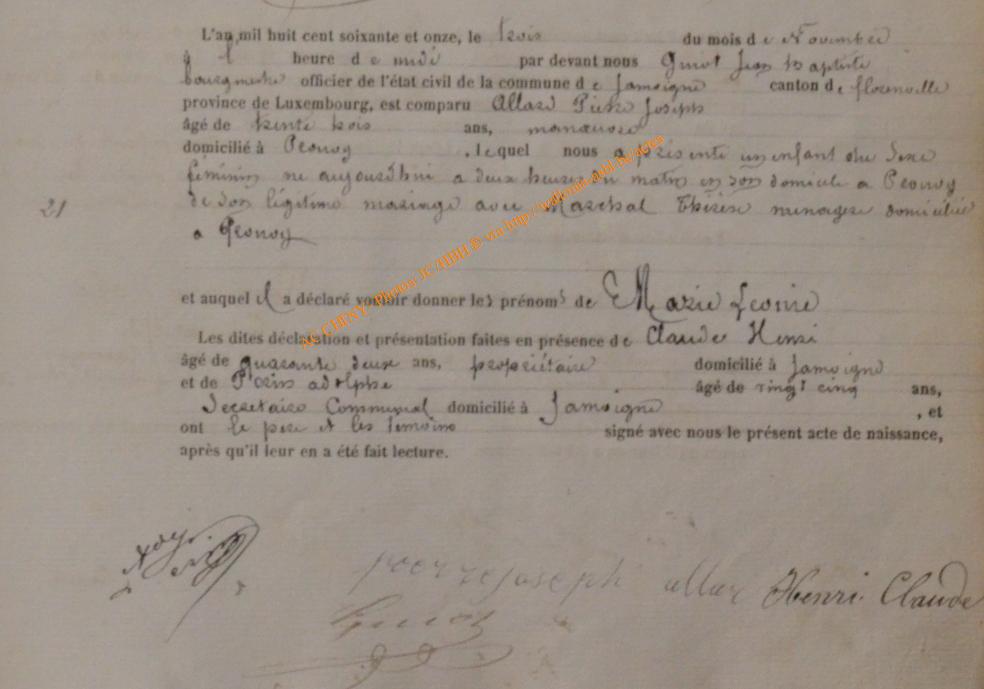 L'an mil huit cent soixante et onze, le trois du mois de Novembre
à heure de midi par devant nous Guiot Jean Baptiste
bourgmestre officier de l'état civil de la commune de Jamoigne canton de florenville
province de Luxembourg, est comparu Allard Pierre Joseph
âgé de trente trois ans, manœuvre
domicilié à Prouvy , lequel nous a présenté un enfant du Sexe
féminin né aujourd'hui a deux heures du matin en son domicile a Prouvy
21 de son légitime mariage avec Marchal Thérèse menagere domiciliée
a Prouvy
et auquel il a déclaré vouloir donner les prénoms de Marie Leonie
Les dites déclaration et présentation faites en présence de Claude Henri
âgé de quarante deux ans, propriétaire domicilié à Jamoigne
et de adolphe âgé de vingt cinq ans,
Secretaire Communal domicilié à Jamoigne , et
ont le pere et les temoins signé avec nous le présent acte de naissance,
après qu'il leur en a été fait lecture.
pierre joseph allar Henri Claude
Guiot